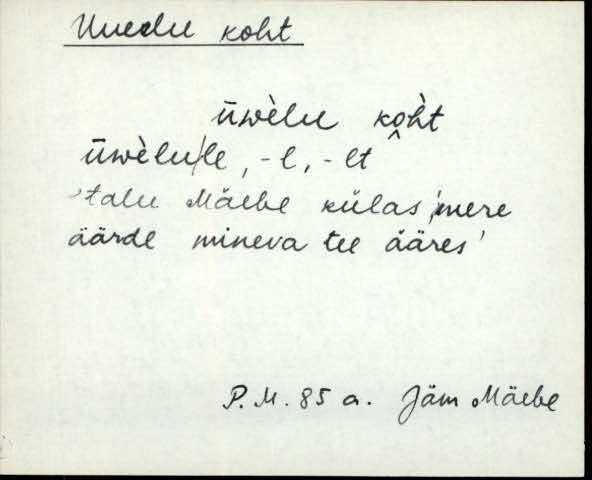 Uuelu koht
ūwèlu kòht
ūwèlu/le, -l, -lt
'talu Mäebe külas, mere
äärde mineva tee ääres'
P.M. 85 a. Jäm Mäebe